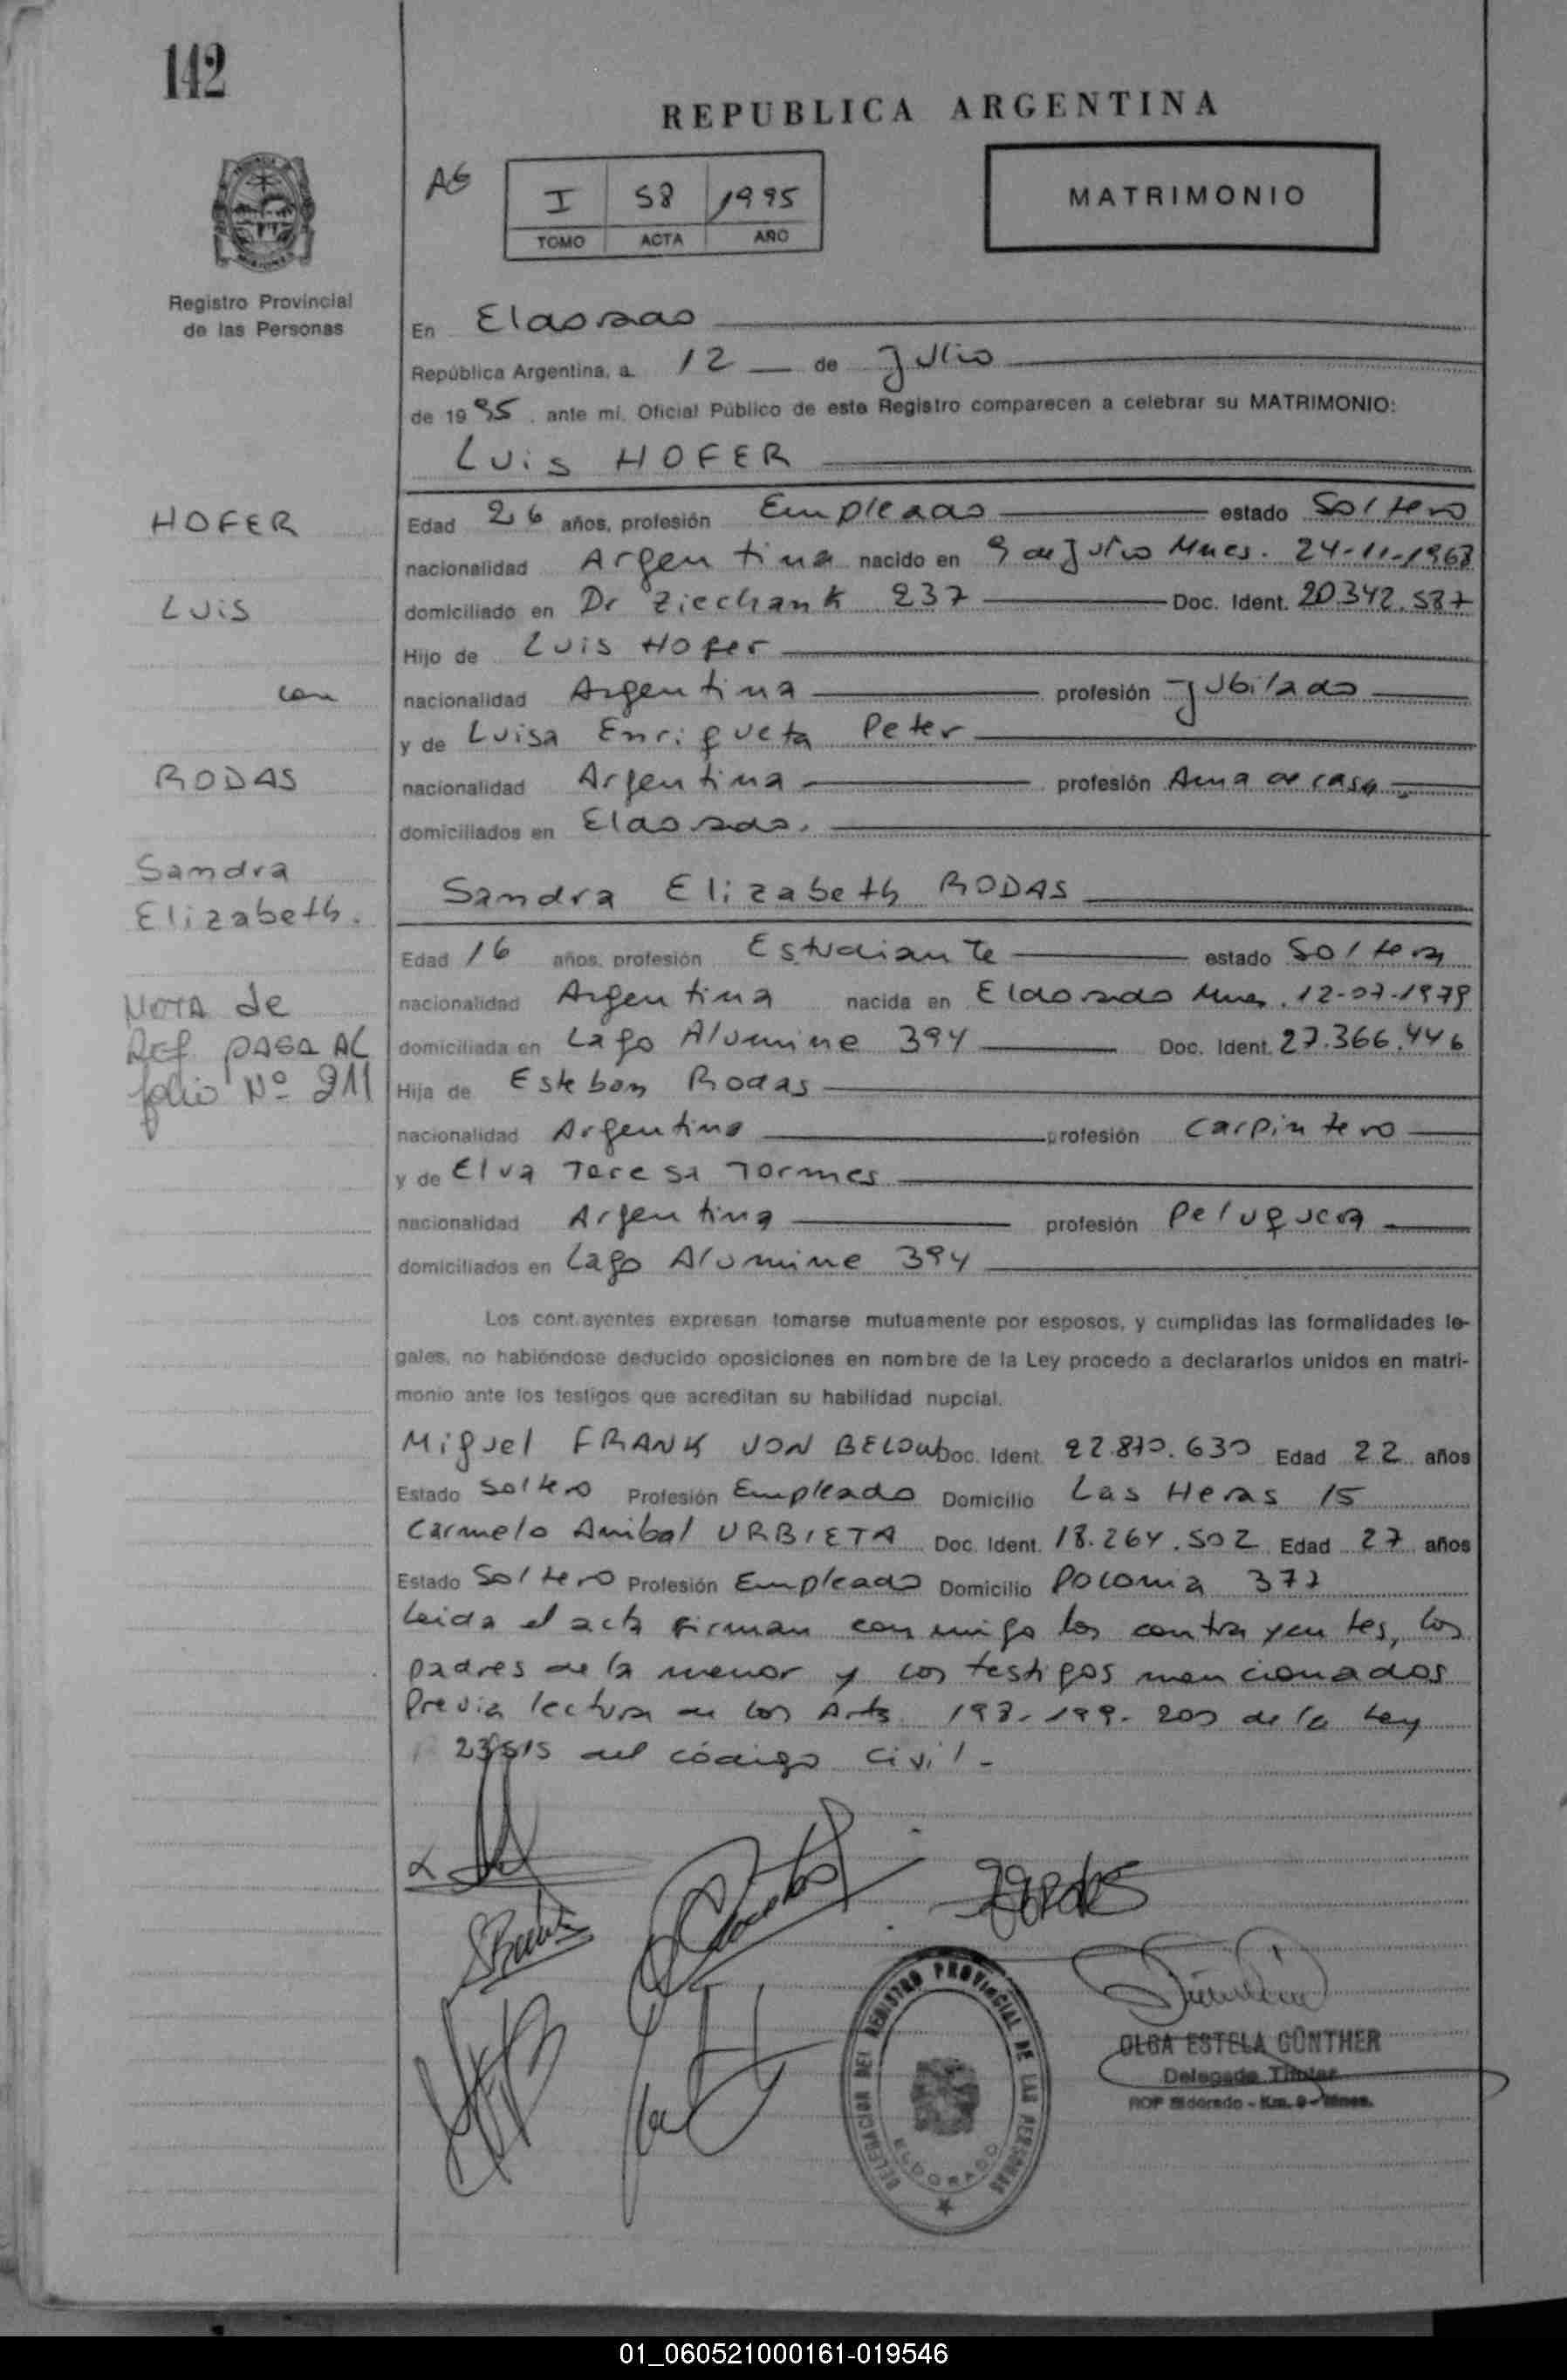 142
REPUBLICA ARGENTINA
AG
I 58 1995
TOMO ACTA AÑO
MATRIMONIO
Registro Provincial
de las Personas
En Eldorado
República Argentina, a 12 de Julio
de 1995, ante mi, Oficial Público de este Registro comparecen a celebrar su MATRIMONIO:
Luis HOFER
HOFER
LUIS
con
RODAS
Sandra
Elizabeth.
NOTA de
Ref. PASA AL
folio Nº 211
Edad 26 años, profesión Empleado estado Soltero
nacionalidad Argentina nacido en 9 de Julio Mnes. 24-11-1968
domiciliado en Dr Ziechank 237 Doc. Ident. 20.342.587
Hijo de Luis Hofer
nacionalidad Argentina profesión Jubilado
y de Luisa Enriqueta Peter
nacionalidad Argentina profesión Ama de casa
domiciliados en Eldorado.
Sandra Elizabeth RODAS
Edad 16 años, profesión Estudiante estado Soltera
nacionalidad Argentina nacida en Eldorado Mnes. 12-07-1979
domiciliada en Lago Alumine 394 Doc. Ident. 27.366.446
Hija de Esteban Rodas
nacionalidad Argentina profesión Carpintero
y de Elva Teresa Tormes
nacionalidad Argentina profesión Peluquera
domiciliados en Lago Alumine 394
Los contrayentes expresan tomarse mutuamente por esposos, y cumplidas las formalidades le-
gales, no habiéndose deducido oposiciones en nombre de la Ley procedo a declararlos unidos en matri-
monio ante los testigos que acreditan su habilidad nupcial.
Miguel FRANK VON BELOW Doc. Ident. 22.870.630 Edad 22 años
Estado Soltero Profesión Empleado Domicilio Las Heras 15
Carmelo Anibal URBIETA Doc. Ident. 18.264.502 Edad 27 años
Estado Soltero Profesión Empleado Domicilio Polonia 377
Leida el acta firman conmigo los contrayentes, los
padres de la menor y los testigos mencionados
Previa lectura de los Arts 198-199-200 de la Ley
23515 del código Civil-
DELEGACION DEL REGISTRO PROVINCIAL DE LAS PERSONAS
ELDORADO
OLGA ESTELA GÜNTHER
Delegada Titular
RDP Eldorado - Km. 9 - Mnes.
01_060521000161-019546